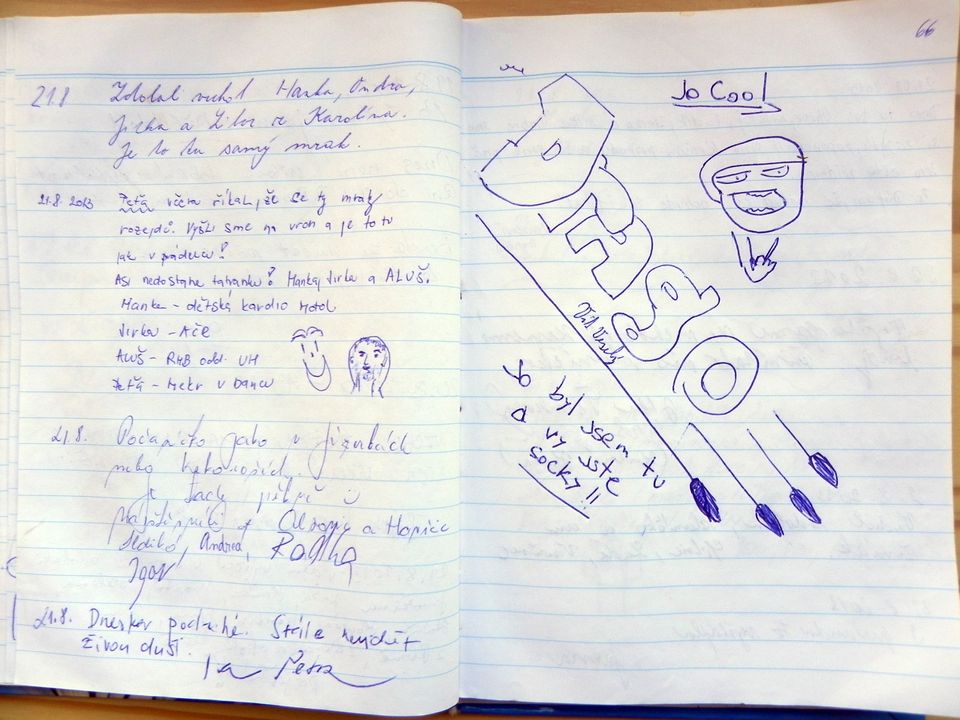 21.8 Zdolal vrchol Hanka, Ondra,
Jirka a Libor ze Karolína.
Je to tu samý mrak.
21.8.2013 Peťa včera říkal, že se ty mraky
rozejdů. Vyšli sme na vrch a je to tu
jak v prdelu?
Asi nedostane tatranku? Hanka, Jirka a ALUŠ.
Hanka - dětská kardio Motol
Jirka - AČR
ALUŠ - RHB odd. UH
Peťa - Mekr v bance
21.8. Počasíčko jako v Jizerkách
nebo Krkonoších.
Je tady pěkně
a Hošice
Ildikó, Andrea,
Igor
21.8. Dneska podruhé. Stále nevidět
živou duši.
Petra
66
Jo Cool
Drago
Vít Veselý
Jo byl jsem tu
a vy jste
socky!!